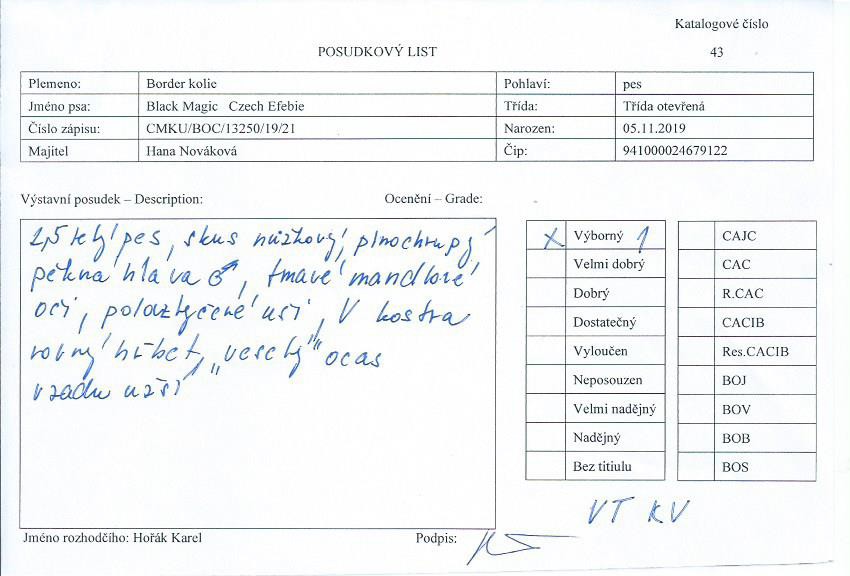 Katalogové číslo
POSUDKOVÝ LIST 43
Plemeno: Border kolie Pohlaví: pes
Jméno psa: Black Magic Czech Efebie Třída: Třída otevřená
Číslo zápisu: CMKU/BOC/13250/19/21 Narozen: 05.11.2019
Majitel Hana Nováková Čip: 941000024679122
Výstavní posudek – Description: Ocenění – Grade:
2,5 letý pes, skus nůžkový, plnochrupý
pěkná hlava ♂, tmavé mandlové
oči, polovztyčené uši, V kostra
rovný hřbet, „veselý" ocas
vzadu užší
X Výborný 1 CAJC
Velmi dobrý CAC
Dobrý R.CAC
Dostatečný CACIB
Vyloučen Res.CACIB
Neposouzen BOJ
Velmi nadějný BOV
Nadějný BOB
Bez titiulu BOS
VT KV
Jméno rozhodčího: Hořák Karel Podpis: